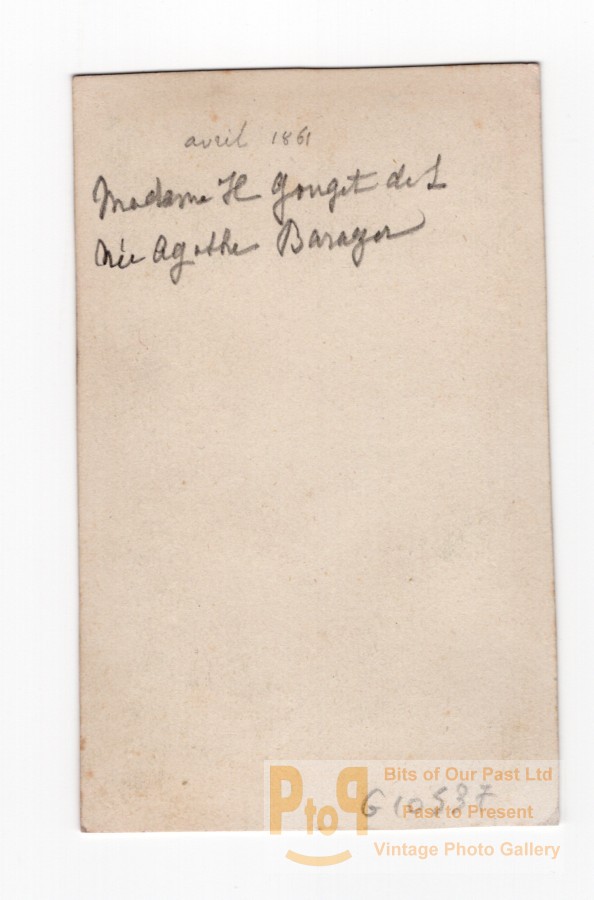 avril 1861
Madame H Gouget de L
Née Agathe Barager
PtoP
Bits of Our Past Ltd
Past to Present
Vintage Photo Gallery
G 10537